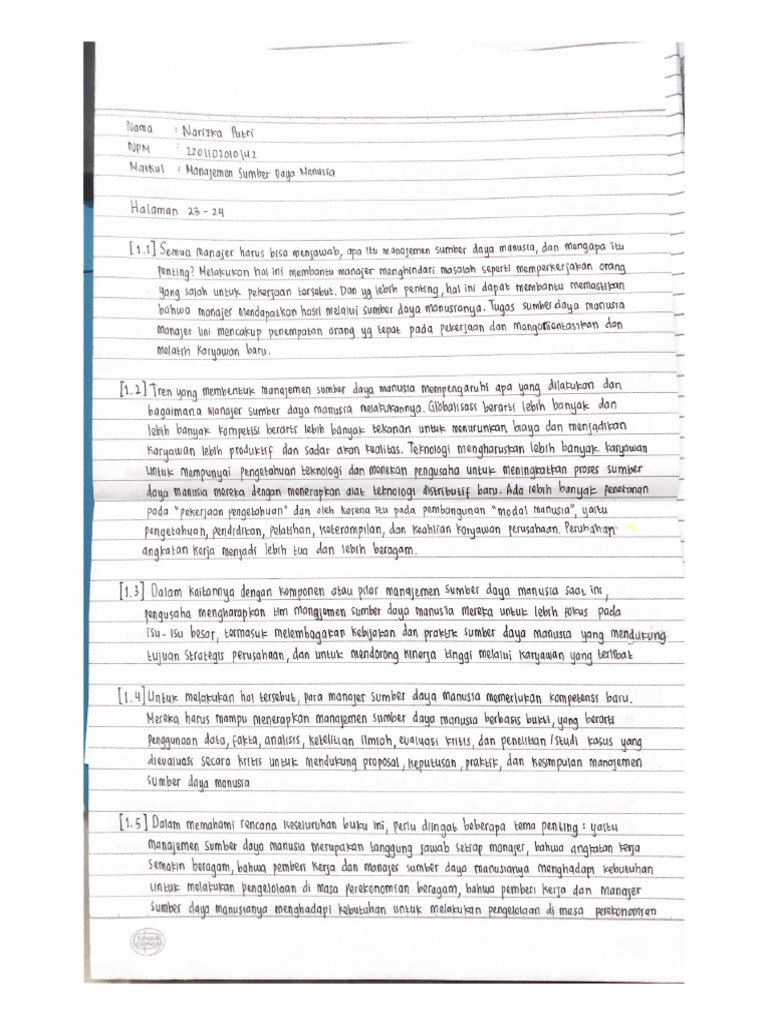 Nama : Narizka Putri
NPM : 2201102010142
Matkul : Manajemen Sumber Daya Manusia
Halaman 23 - 24
[1.1] Semua manajer harus bisa menjawab, apa itu manajemen sumber daya manusia, dan mengapa itu
penting? Melakukan hal ini membantu manajer menghindari masalah seperti memperkerjakan orang
yang salah untuk pekerjaan tersebut. Dan yg lebih penting, hal ini dapat membantu memastikan
bahwa manajer mendapatkan hasil melalui sumber daya manusianya. Tugas sumber daya manusia
manajer lini mencakup penempatan orang yg tepat pada pekerjaan dan mengorientasikan dan
melatih karyawan baru.
[1.2] Tren yang membentuk manajemen sumber daya manusia mempengaruhi apa yang dilakukan dan
bagaimana Manajer sumber daya manusia melakukannya. Globalisasi berarti lebih banyak dan
lebih banyak kompetisi berarti lebih banyak tekanan untuk menurunkan biaya dan menjadikan
karyawan lebih produktif dan sadar akan kualitas. Teknologi mengharuskan lebih banyak karyawan
untuk mempunyai pengetahuan teknologi dan menekan pengusaha untuk meningkatkan proses sumber
daya manusia mereka dengan menerapkan alat teknologi distributif baru. Ada lebih banyak penekanan
pada "pekerjaan pengetahuan" dan oleh karena itu pada pembangunan "modal manusia", yaitu
pengetahuan, pendidikan, pelatihan, keterampilan, dan keahlian karyawan perusahaan. Perubahan
angkatan kerja menjadi lebih tua dan lebih beragam.
[1.3] Dalam kaitannya dengan komponen atau pilar manajemen sumber daya manusia saat ini,
pengusaha mengharapkan tim manajemen sumber daya manusia mereka untuk lebih fokus pada
isu-isu besar, termasuk melembagakan kebijakan dan praktik sumber daya manusia yang mendukung
tujuan strategis perusahaan, dan untuk mendorong kinerja tinggi melalui karyawan yang terlibat
[1.4] Untuk melakukan hal tersebut, para manajer sumber daya manusia memerlukan kompetensi baru.
Mereka harus mampu menerapkan manajemen sumber daya manusia berbasis bukti, yang berarti
penggunaan data, fakta, analisis, ketelitian ilmiah, evaluasi kritis, dan penelitian /studi kasus yang
dievaluasi secara kritis untuk mendukung proposal, keputusan, praktik, dan kesimpulan manajemen
sumber daya manusia
[1.5] Dalam memahami rencana keseluruhan buku ini, perlu diingat beberapa tema penting : yaitu
manajemen sumber daya manusia merupakan tanggung jawab setiap manajer, bahwa angkatan kerja
semakin beragam, bahwa pemberi kerja dan manajer sumber daya manusianya menghadapi kebutuhan
untuk melakukan pengelolaan di masa perekonomian beragam, bahwa pemberi kerja dan manajer
sumber daya manusianya menghadapi kebutuhan untuk melakukan pengelolaan di masa perekonomian
SINAR
DUNIA